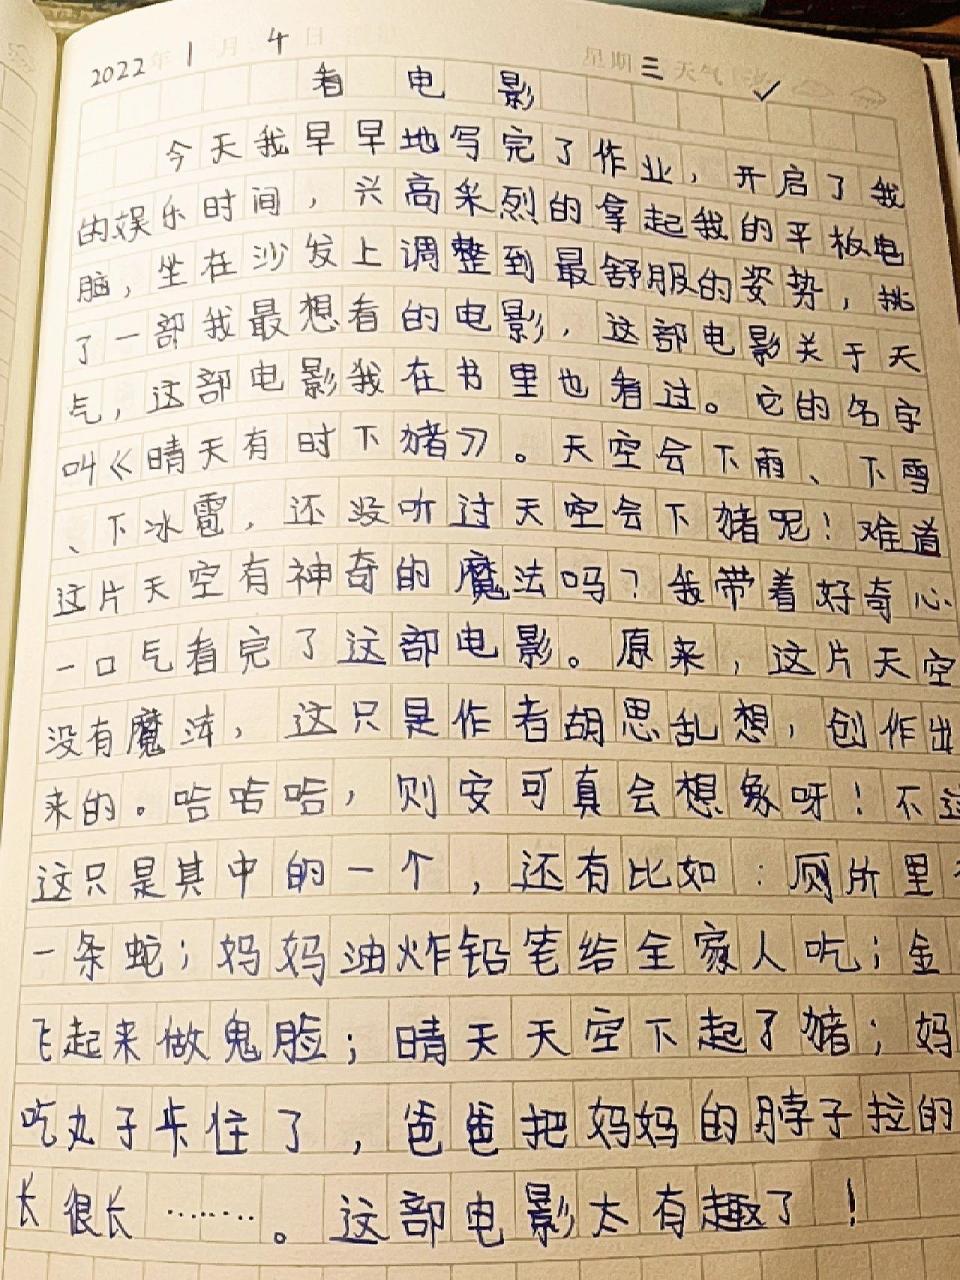 2022年 1月 4日 星期三 天气
看电影
今天我早早地写完了作业，开启了我
的娱乐时间，兴高采烈的拿起我的平板电
脑，坐在沙发上调整到最舒服的姿势，挑
了一部我最想看的电影，这部电影关于天
气，这部电影我在书里也看过。它的名字
叫《晴天有时下猪》。天空会下雨、下雪
、下冰雹，还没听过天空会下猪呢！难道
这片天空有神奇的魔法吗？我带着好奇心
一口气看完了这部电影。原来，这片天空
没有魔法，这只是作者胡思乱想，创作出
来的。哈哈哈，则安可真会想象呀！不过
这只是其中的一个，还有比如：厕所里
一条蛇；妈妈油炸铅笔给全家人吃；金
飞起来做鬼脸；晴天天空下起了猪；妈
吃丸子卡住了，爸爸把妈妈的脖子拉的
长很长………。这部电影太有趣了！